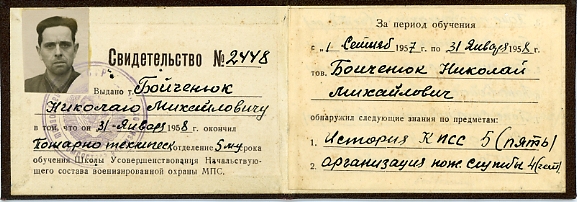 Свидетельство № 2448
Выдано т. Бойченюк
Николаю Михайловичу
в том, что он 31 Января 1958 г. окончил
Пожарно технич. отделение 5 срока
обучения Школы Усовершенствования Начальствую-
щего состава военизированной охраны МПС.
За период обучения
с „1 Сентяб 1957 г. по 31 Января 1958 г.
тов. Бойченюк Николай
Михайлович
обнаружил следующие знания по предметам:
1. История КПСС 5 (пять)
2. Организация пож. службы 4